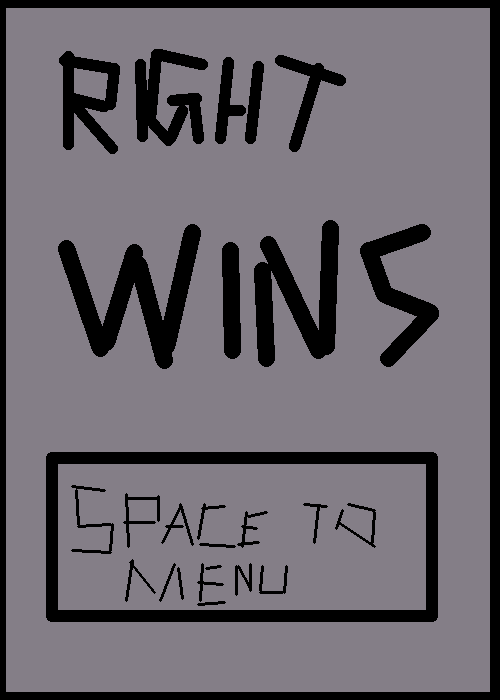 RIGHT
WINS
SPACE TO
MENU